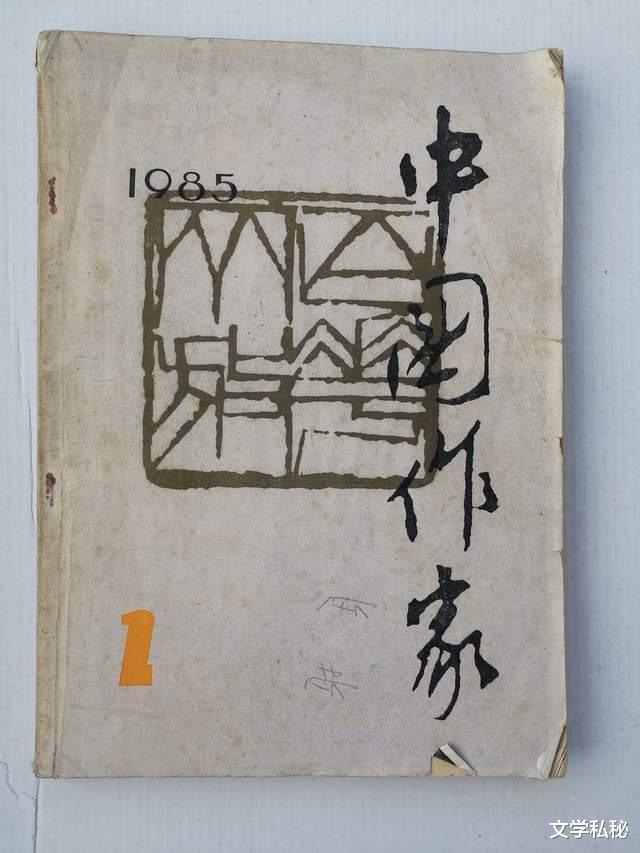 1985
中国作家
1
文学私秘